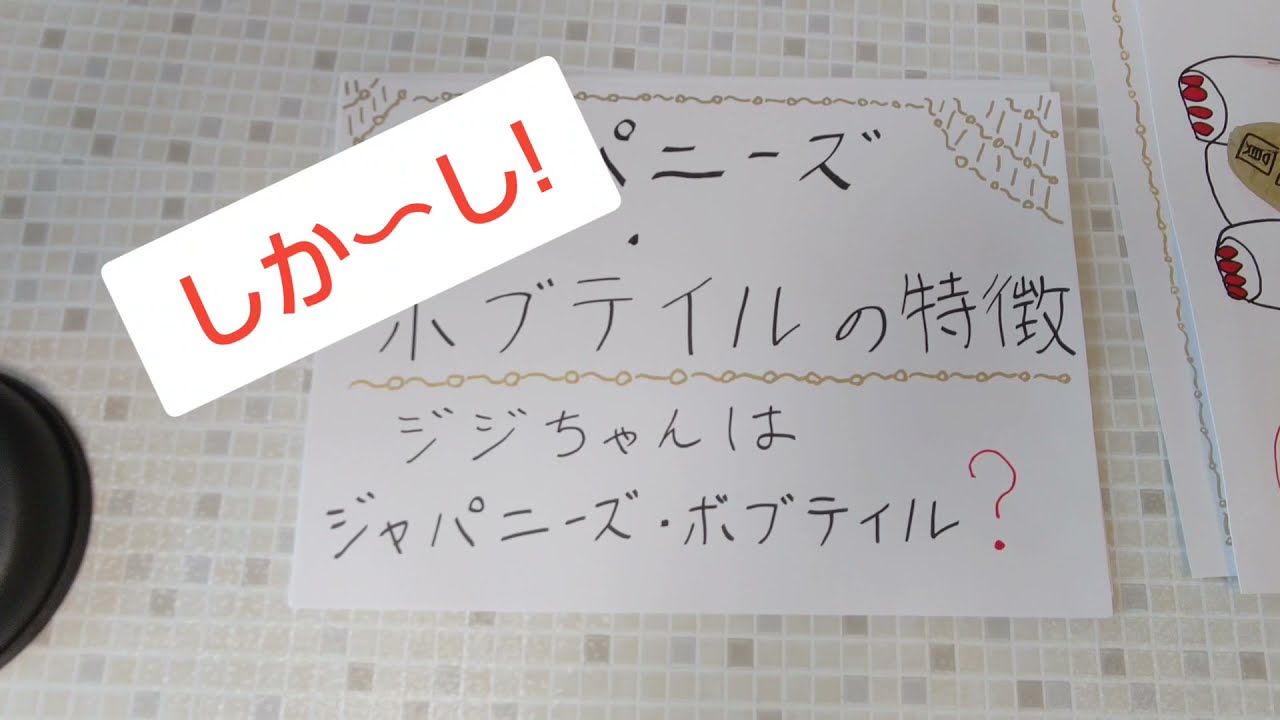 しか〜し!
パニーズ
・
ボブテイルの特徴
ジジちゃんは
ジャパニーズ・ボブテイル?